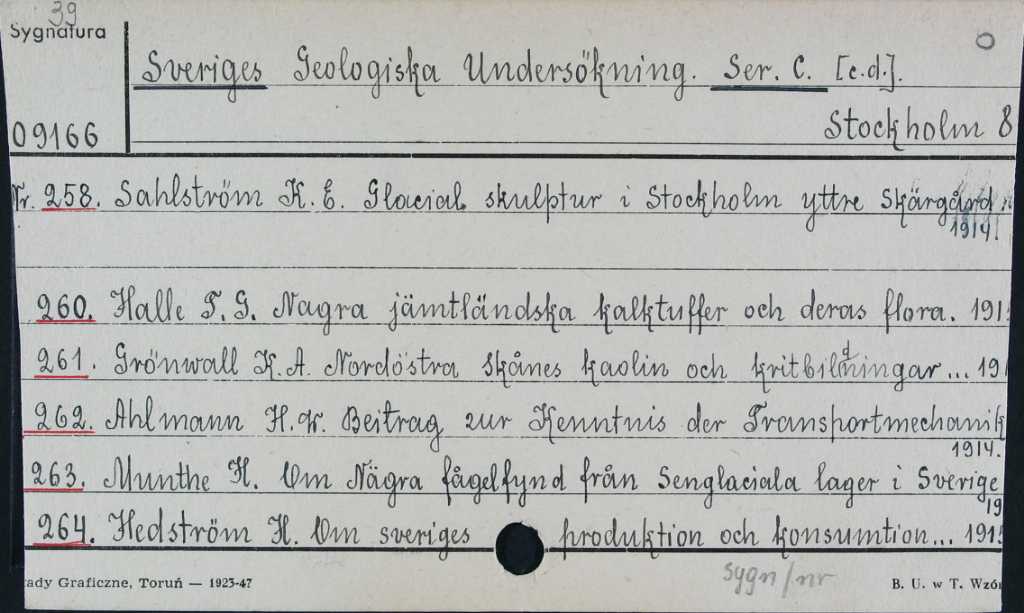 39
Sygnatura
O
Sveriges Geologiska Undersökning. Ser. C. [c.d.].
09166
Stockholm 8
Nr. 258. Sahlström K. E. Glacial skulptur i Stockholm yttre Skärgård.
1914.
260. Halle T. G. Nagra jämtländska kalktuffer och deras flora. 191
261. Grönwall K. A. Nordöstra Skånes kaolin och kritbildningar... 19
262. Ahlmann H. W. Beitrag zur Kenntnis der Transportmechanik
1914.
263. Munthe H. Om Nägra fågelfynd från Senglaciala lager i Sverige
19
264. Hedström H. Om sveriges produktion och konsumtion... 191
sygn/nr
ady Graficzne, Toruń — 1923-47
B. U. w T. Wzó